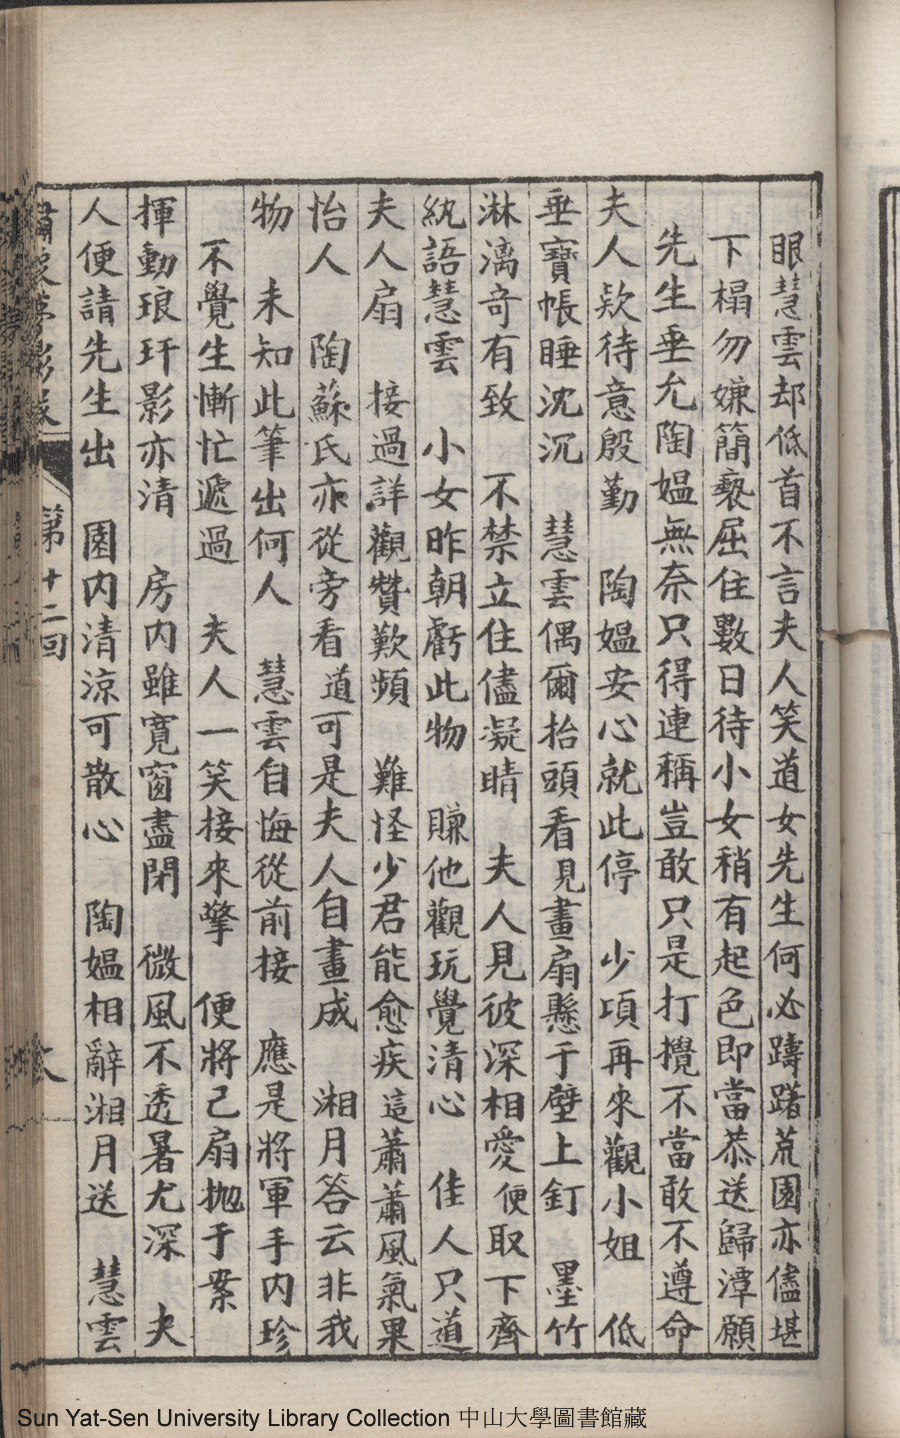 眼慧雲却低首不言夫人笑道女先生何必躊躇荒園亦儘堪
下榻勿嫌簡褻屈住數日待小女稍有起色即當恭送歸潭願
先生垂允陶媪無奈只得連稱豈敢只是打攪不當敢不遵命
夫人欵待意殷勤　陶媪安心就此停　少項再來觀小姐　低
垂寶帳睡沈沉　慧雲偶爾抬頭看見畫扇懸于壁上釘　墨竹
淋漓奇有致　不禁立住儘凝睛　夫人見彼深相愛便取下齊
紈語慧雲　小女昨朝虧此物　賺他觀玩覺清心　佳人只道
夫人扇　接過詳觀贊歎頻　難怪少君能愈疾這蕭蕭風氣果
怡人　陶蘇氏亦從旁看道可是夫人自畫成　湘月答云非我
物　未知此筆出何人　慧雲自悔從前接　應是將軍手內珍
不覺生慚忙遞過　夫人一笑接來擎　便將己扇拋于案
揮動琅玕影亦清　房內雖寬窗盡閉　微風不透暑尤深　夫
人便請先生出　園內清涼可散心　陶媪相辭湘月送　慧雲
第十二回
Sun Yat-Sen University Library Collection 中山大學圖書館藏